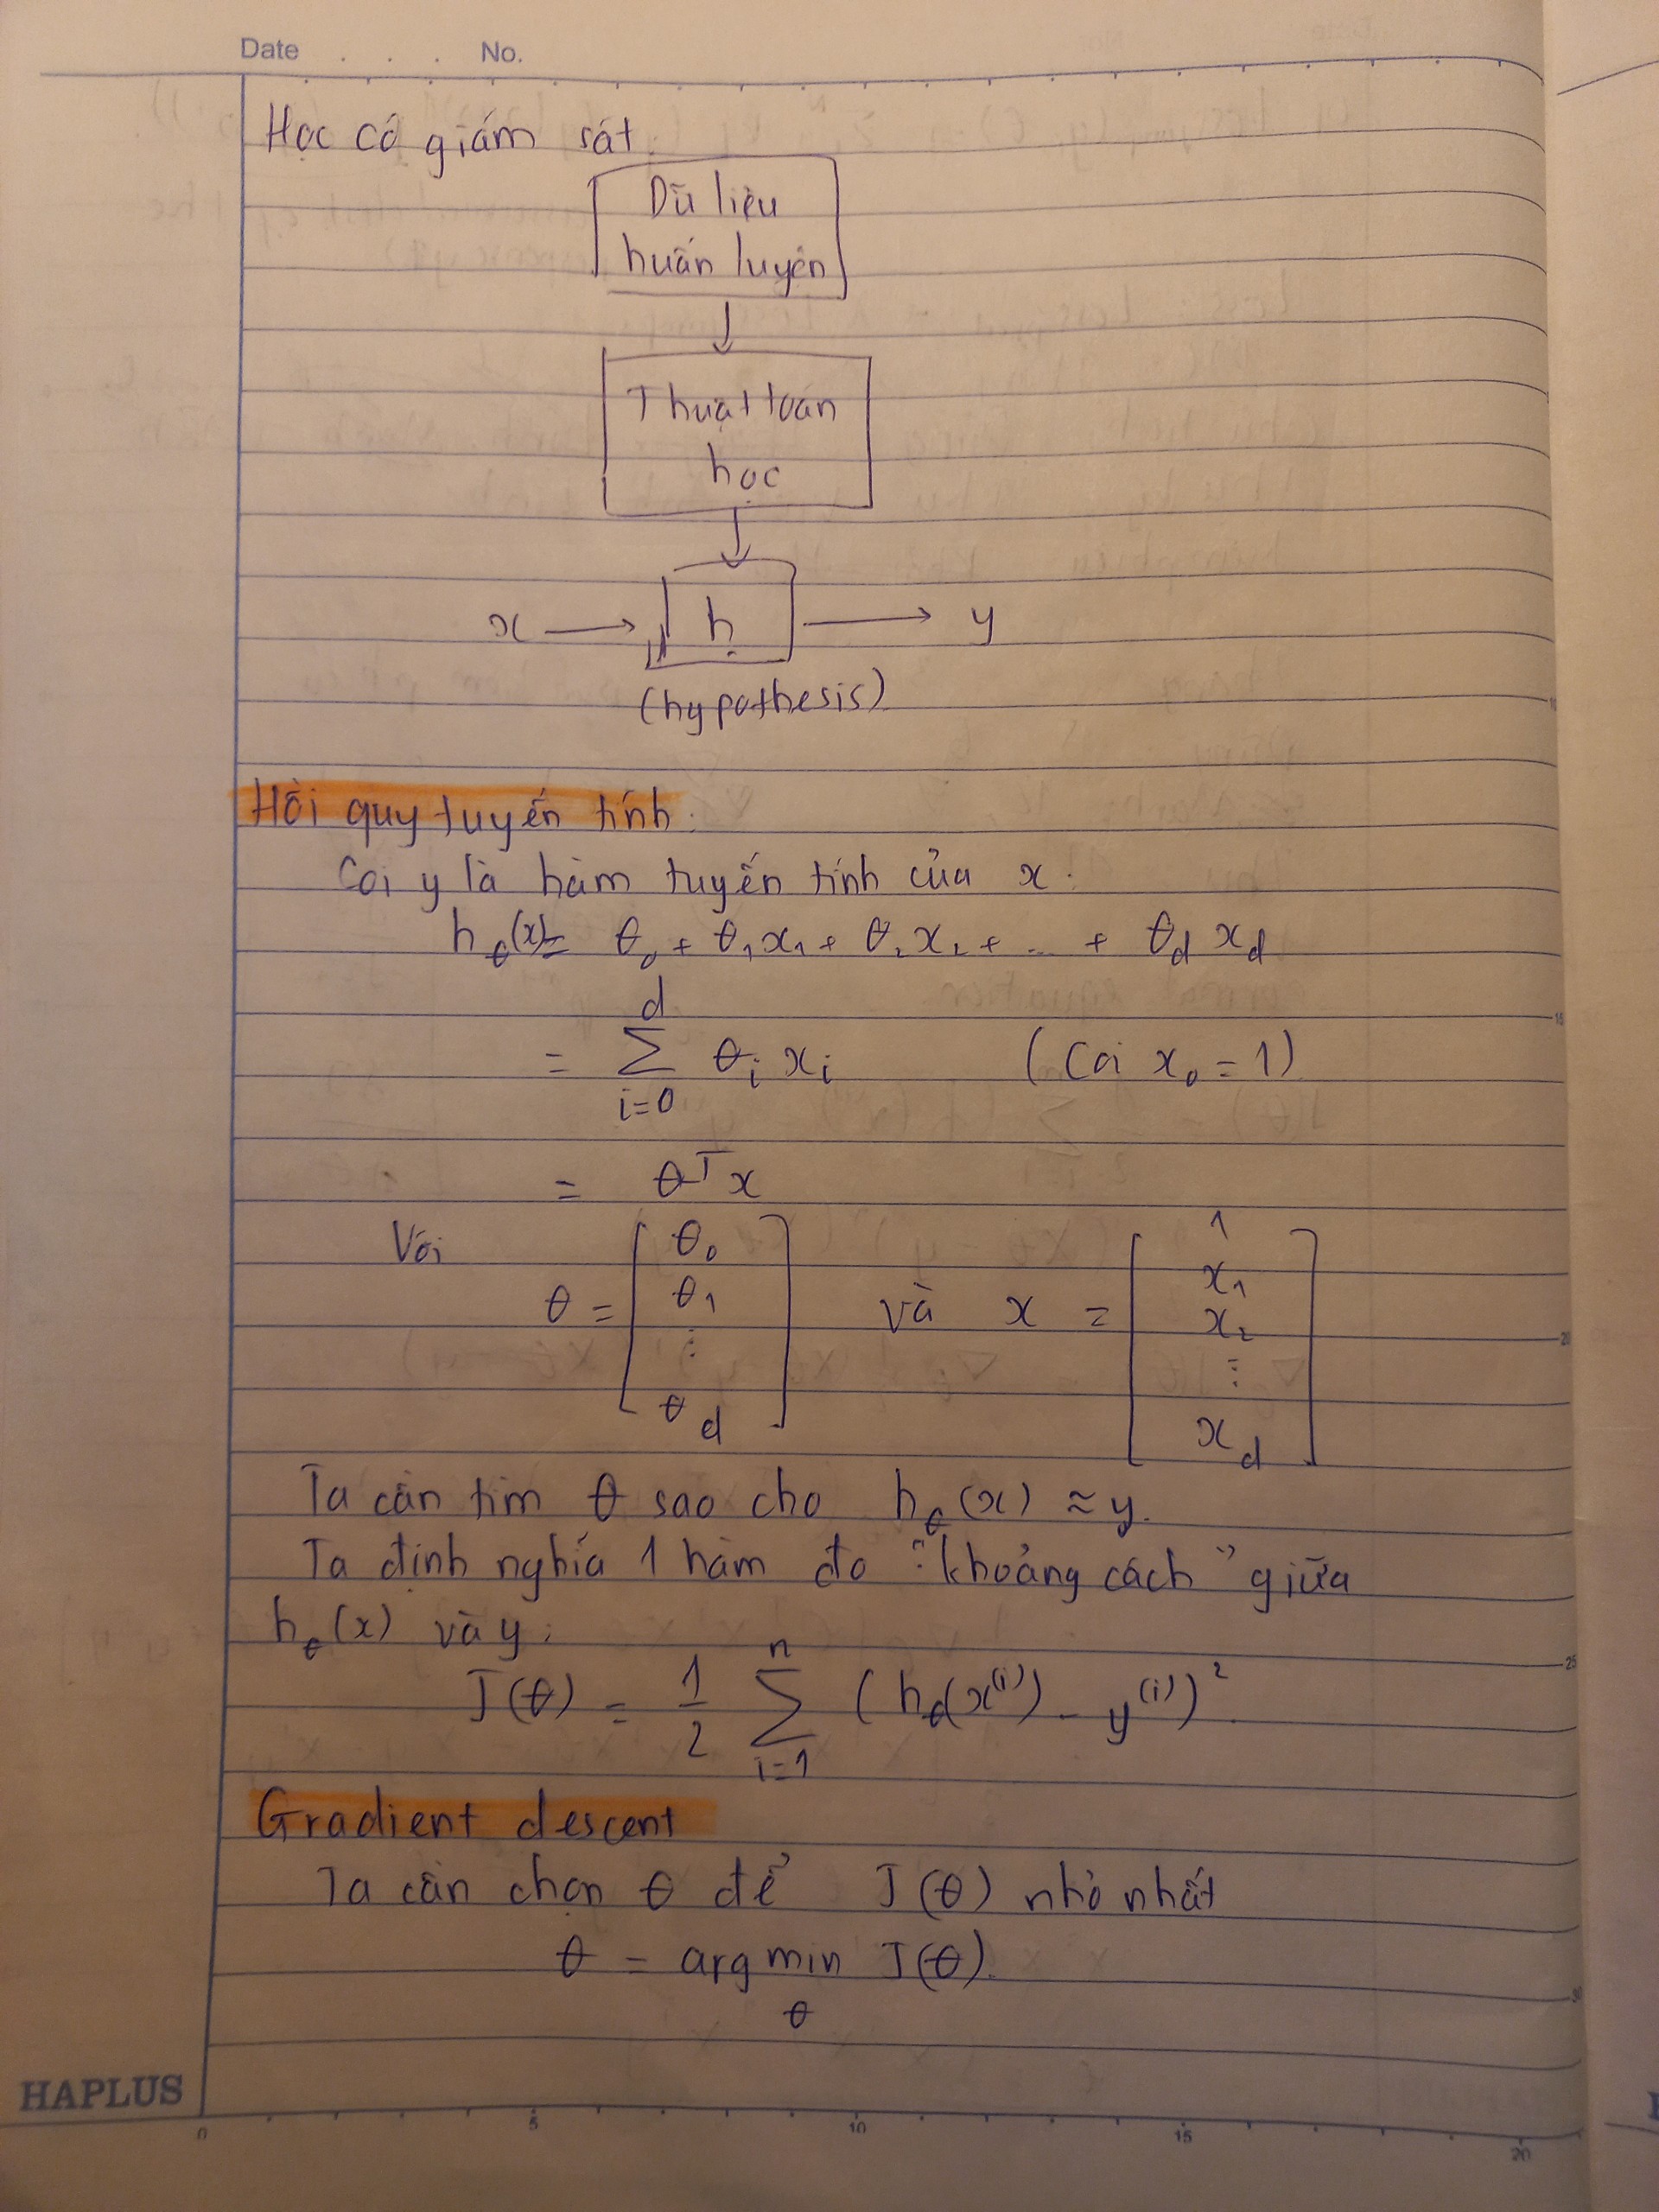 Date . . . No.
Học có giám sát.
Dữ liệu
huấn luyện
Thuật toán
học
x → h → y
(hypothesis)
Hồi quy tuyến tính:
Coi y là hàm tuyến tính của x.
h_θ(x) = θ₀ + θ₁x₁ + θ₂x₂ + ... + θ_d x_d
= ∑_{i=0}^{d} θ_i x_i (Coi x₀ = 1)
= θᵀx
Với
θ = [θ₀ θ₁ ⋮ θ_d] và x = [1 x₁ x₂ ⋮ x_d]
Ta cần tìm θ sao cho h_θ(x) ≈ y.
Ta định nghĩa 1 hàm đo "khoảng cách" giữa
h_θ(x) và y:
J(θ) = 1/2 ∑_{i=1}^{n} (h_θ(x^(i)) - y^(i))².
Gradient descent
Ta cần chọn θ để J(θ) nhỏ nhất
θ = arg min J(θ).
θ
HAPLUS
0 5 10 15 20